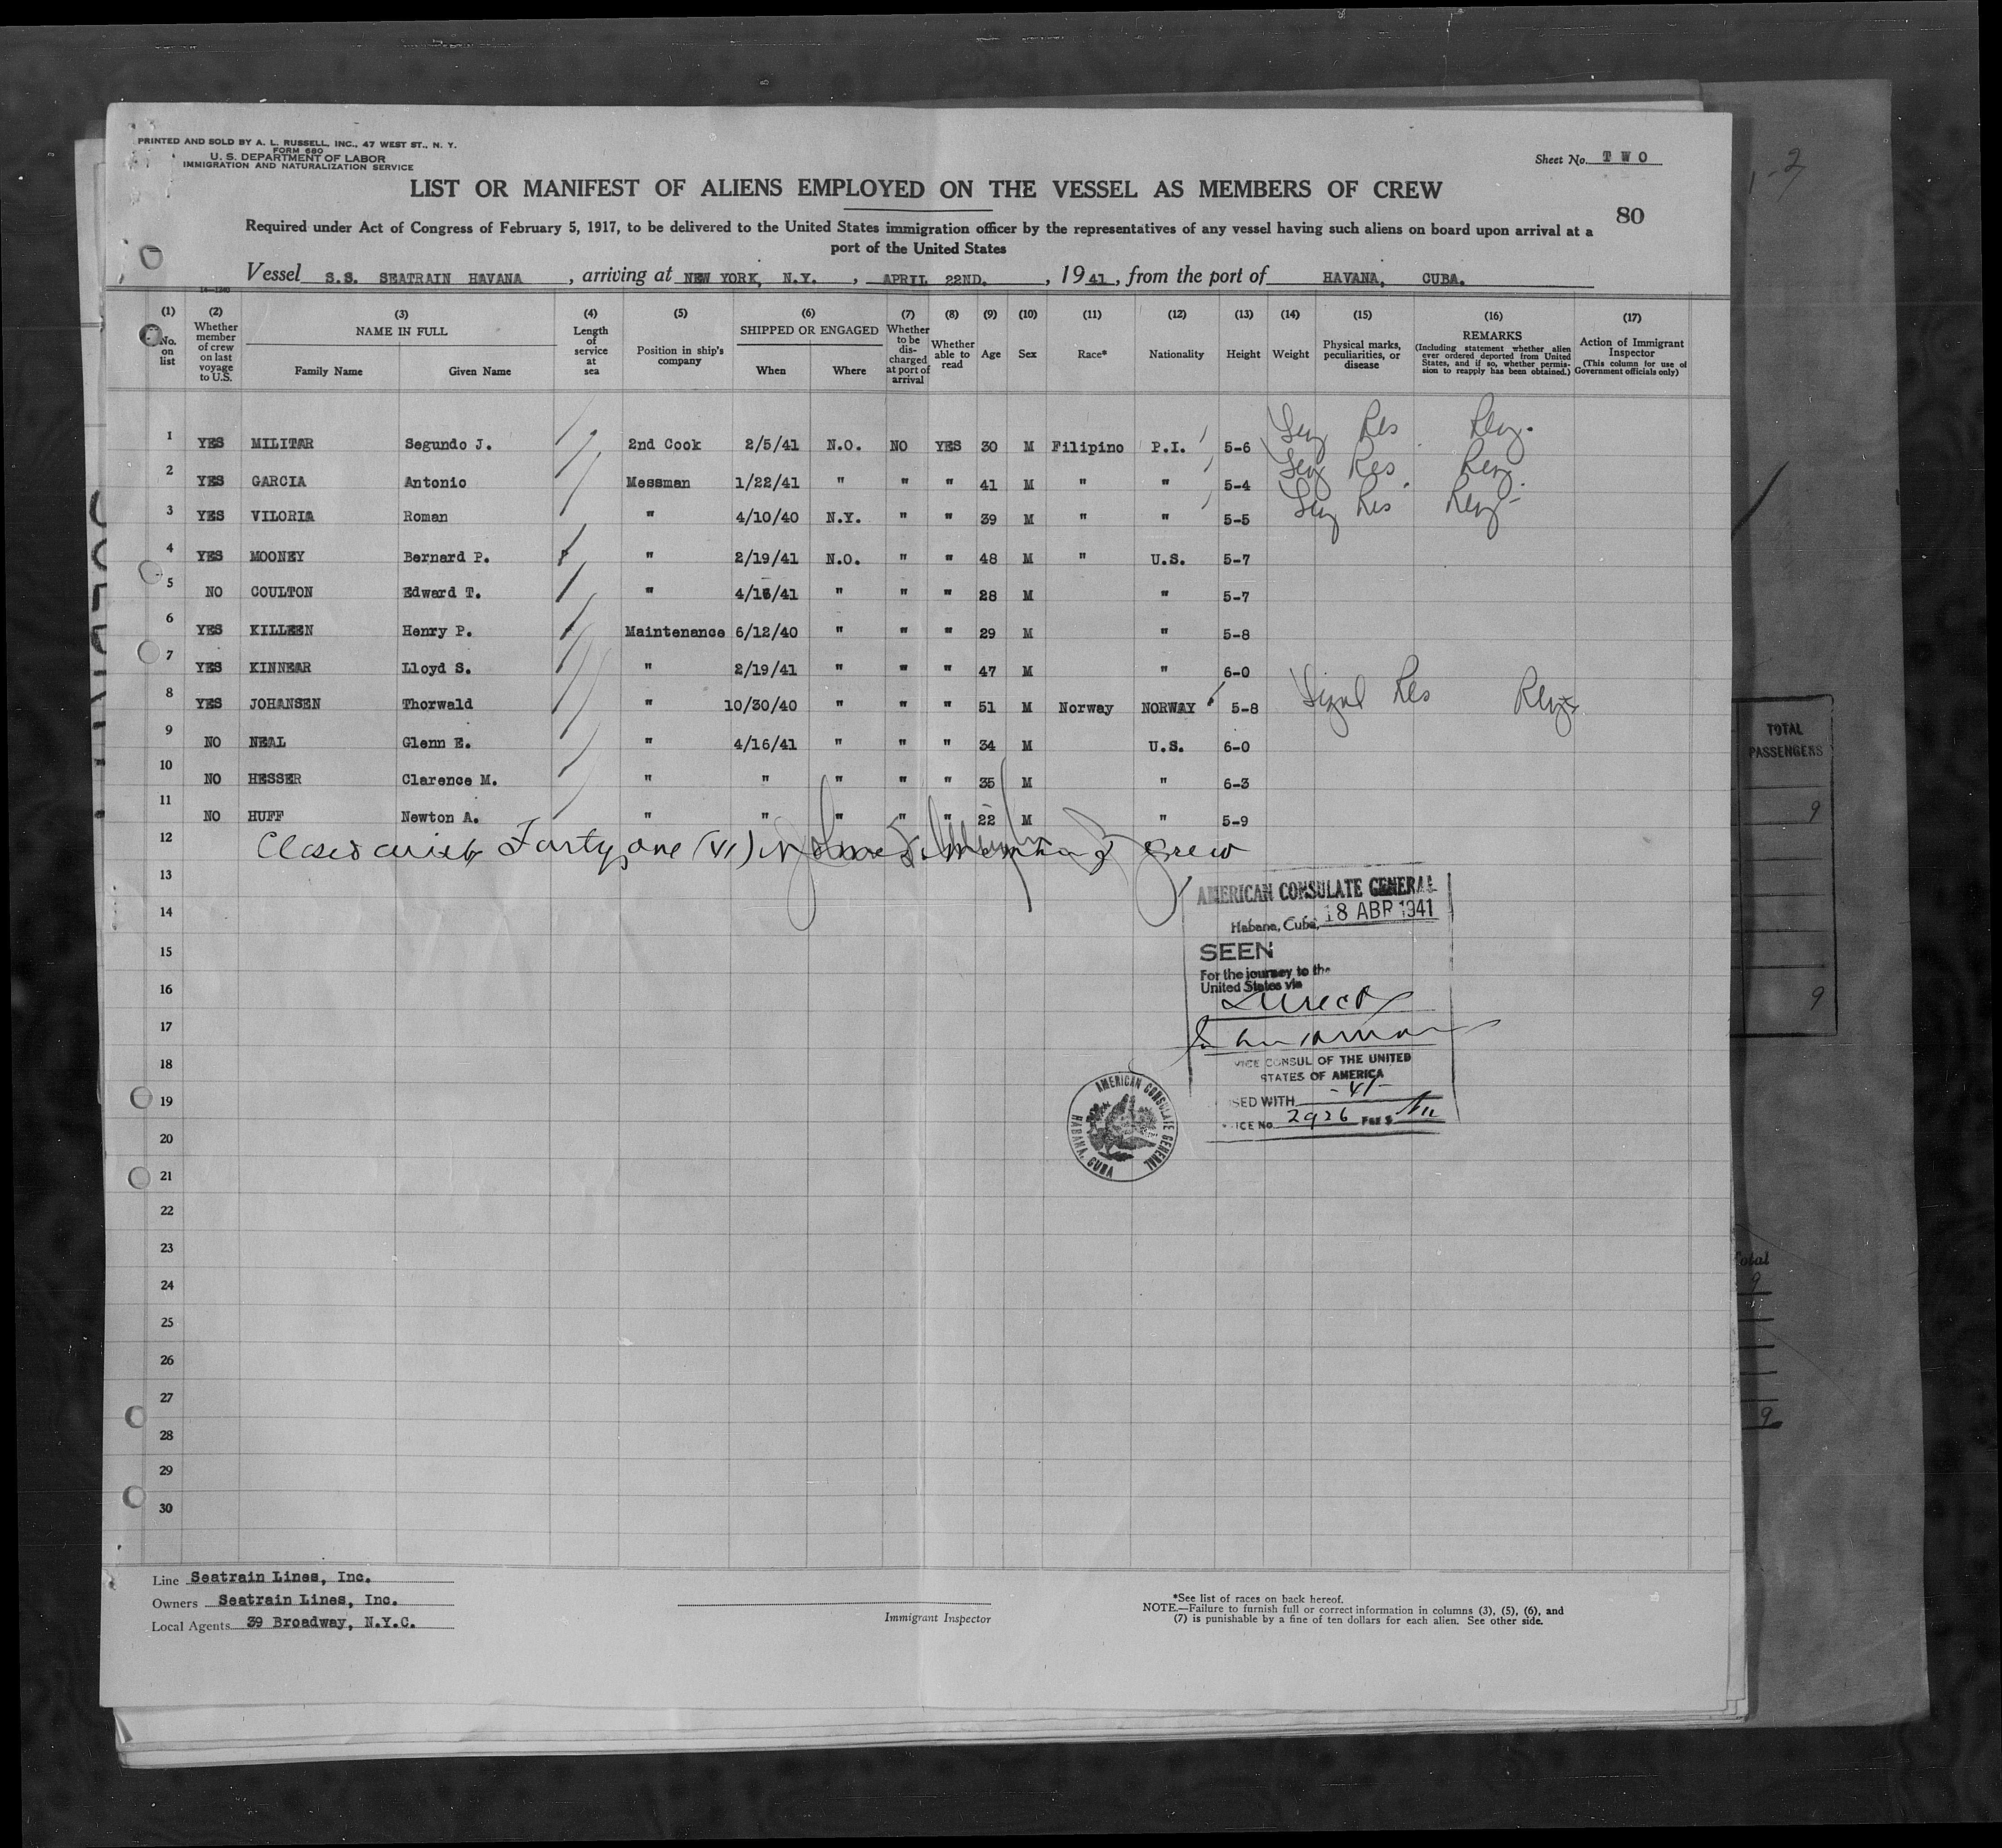 PRINTED AND SOLD BY A. L. RUSSELL, INC., 47 WEST ST., N. Y.
FORM 680
U. S. DEPARTMENT OF LABOR
IMMIGRATION AND NATURALIZATION SERVICE
Sheet No. TWO
LIST OR MANIFEST OF ALIENS EMPLOYED ON THE VESSEL AS MEMBERS OF CREW
80
Required under Act of Congress of February 5, 1917, to be delivered to the United States immigration officer by the representatives of any vessel having such aliens on board upon arrival at a
port of the United States
Vessel S.S. SEATRAIN HAVANA, arriving at NEW YORK, N.Y., APRIL 22ND., 1941, from the port of HAVANA, CUBA.
(1) No. on list
(2) Whether member of crew on last voyage to U.S.
(3) NAME IN FULL Family Name Given Name
(4) Length of service at sea
(5) Position in ship's company
(6) SHIPPED OR ENGAGED When Where
(7) Whether to be discharged at port of arrival
(8) Whether able to read
(9) Age
(10) Sex
(11) Race*
(12) Nationality
(13) Height
(14) Weight
(15) Physical marks, peculiarities, or disease
(16) REMARKS (Including statement whether alien ever ordered deported from United States, and if so, whether permission to reapply has been obtained.)
(17) Action of Immigrant Inspector (This column for use of Government officials only)
1 YES MILITAR Segundo J. 2nd Cook 2/5/41 N.O. NO YES 30 M Filipino P.I. 5-6 Res
2 YES GARCIA Antonio Messman 1/22/41 " " " 41 M " " 5-4 Res
3 YES VILORIA Roman " 4/10/40 N.Y. " " 39 M " " 5-5 Res
4 YES MOONEY Bernard P. " 2/19/41 N.O. " " 48 M " U.S. 5-7
5 NO COULTON Edward T. " 4/16/41 " " " 28 M " 5-7
6 YES KILLEEN Henry P. Maintenance 6/12/40 " " " 29 M " 5-8
7 YES KINNEAR Lloyd S. " 2/19/41 " " " 47 M " 6-0
8 YES JOHANSEN Thorwald " 10/30/40 " " " 51 M Norway NORWAY 5-8 Res
9 NO NEAL Glenn E. " 4/16/41 " " " 34 M U.S. 6-0
10 NO HESSER Clarence M. " " " " " 35 M " 6-3
11 NO HUFF Newton A. " " " " " 22 M " 5-9
12 Closed with Forty one (41) crew
13
14
15
16
17
18
19
20
21
22
23
24
25
26
27
28
29
30
AMERICAN CONSULATE GENERAL
Habana, Cuba, 18 ABR 1941
SEEN
For the journey to the
United States via
Direct
VICE CONSUL OF THE UNITED
STATES OF AMERICA
SED WITH -41-
ICE No. 2926 FEE $
AMERICAN CONSULATE GENERAL
HABANA, CUBA
Line Seatrain Lines, Inc.
Owners Seatrain Lines, Inc.
Local Agents 39 Broadway, N.Y.C.
Immigrant Inspector
*See list of races on back hereof.
NOTE.—Failure to furnish full or correct information in columns (3), (5), (6), and
(7) is punishable by a fine of ten dollars for each alien. See other side.
TOTAL
PASSENGERS
9
9
9
9